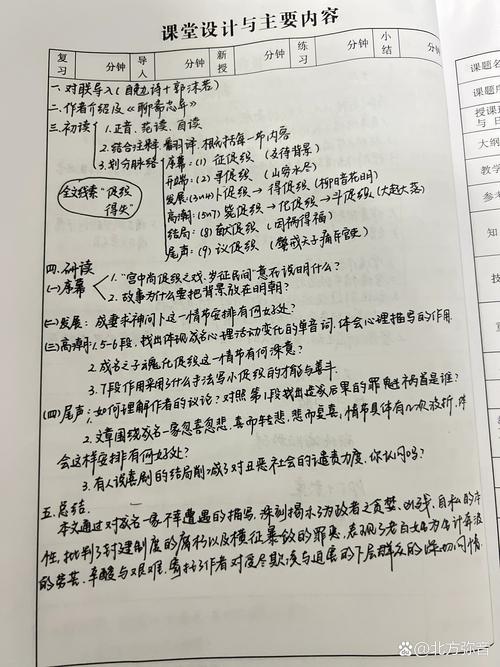 课堂设计与主要内容
复习 分钟 导入 分钟 新授 分钟 练习 分钟 小结 分钟
一、对联导入(自勉诗+郭沫若)
二、作者介绍及《聊斋志异》
三、初读 1.正音、范读、自读
2.结合注释翻译,概括每一节内容
3.划分脉络 序幕:(1) 征促织 (交待背景)
开端:(2) 寻促织 (山穷水尽)
发展:(3~4) 卜促织→得促织 (柳暗花明)
高潮:(5~7) 毙促织→化促织→斗促织 (大起大落)
结局:(8) 献促织 (因祸得福)
尾声:(9) 议促织 (警戒天子痛斥官吏)
全文线索"促织得失"
四、研读
(一)序幕 1."宫中尚促织之戏,岁征民间"意在说明什么?
2.故事为什么要把背景放在明朝?
(二)发展:成妻求神问卜这一情节安排有何好处?
(三)高潮:1.5-6段,找出体现成名心理活动变化的单音词,体会心理描写的作用.
2.成名之子魂化促织这一情节有何深意?
3.7段作用采用了什么手法写小促织的才能与善斗.
(四)尾声:1.如何理解作者的议论?对照第1段找出造成后果的罪魁祸首是谁?
2.文章围绕成名一家忽喜忽悲,喜而转悲,悲而复喜,情节具体有几次波折,作
会这样安排有何好处?
3.有人说喜剧的结局削减了对丑恶社会的谴责力度,你认同吗?
五、总结.
本文通过对成名一家不幸遭遇的描写,深刻揭示了为政者之贪婪、凶残、自私的本
性,批判了封建制度的腐朽以及横征暴敛的罪恶,表现了老百姓为生计奔波
的劳苦、辛酸与艰难,寄托了作者对受尽欺凌与迫害的下层群众的深切同情.
课题名
课题序
授课
与日
大纲
教学
参考
知
技
教
@北方弥音